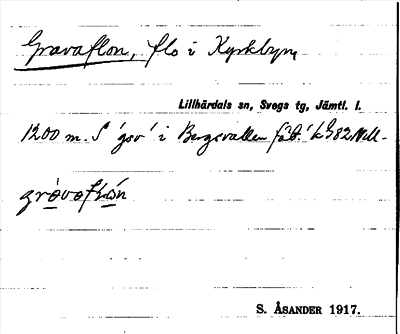 Gravaflon, flo i Kyrkbyn,
Lillhärdals sn, Svegs tg, Jämtl. l.
1200 m. S 'gav' i Bergsvallen fäb.
gravaflón
S. ÅSANDER 1917.